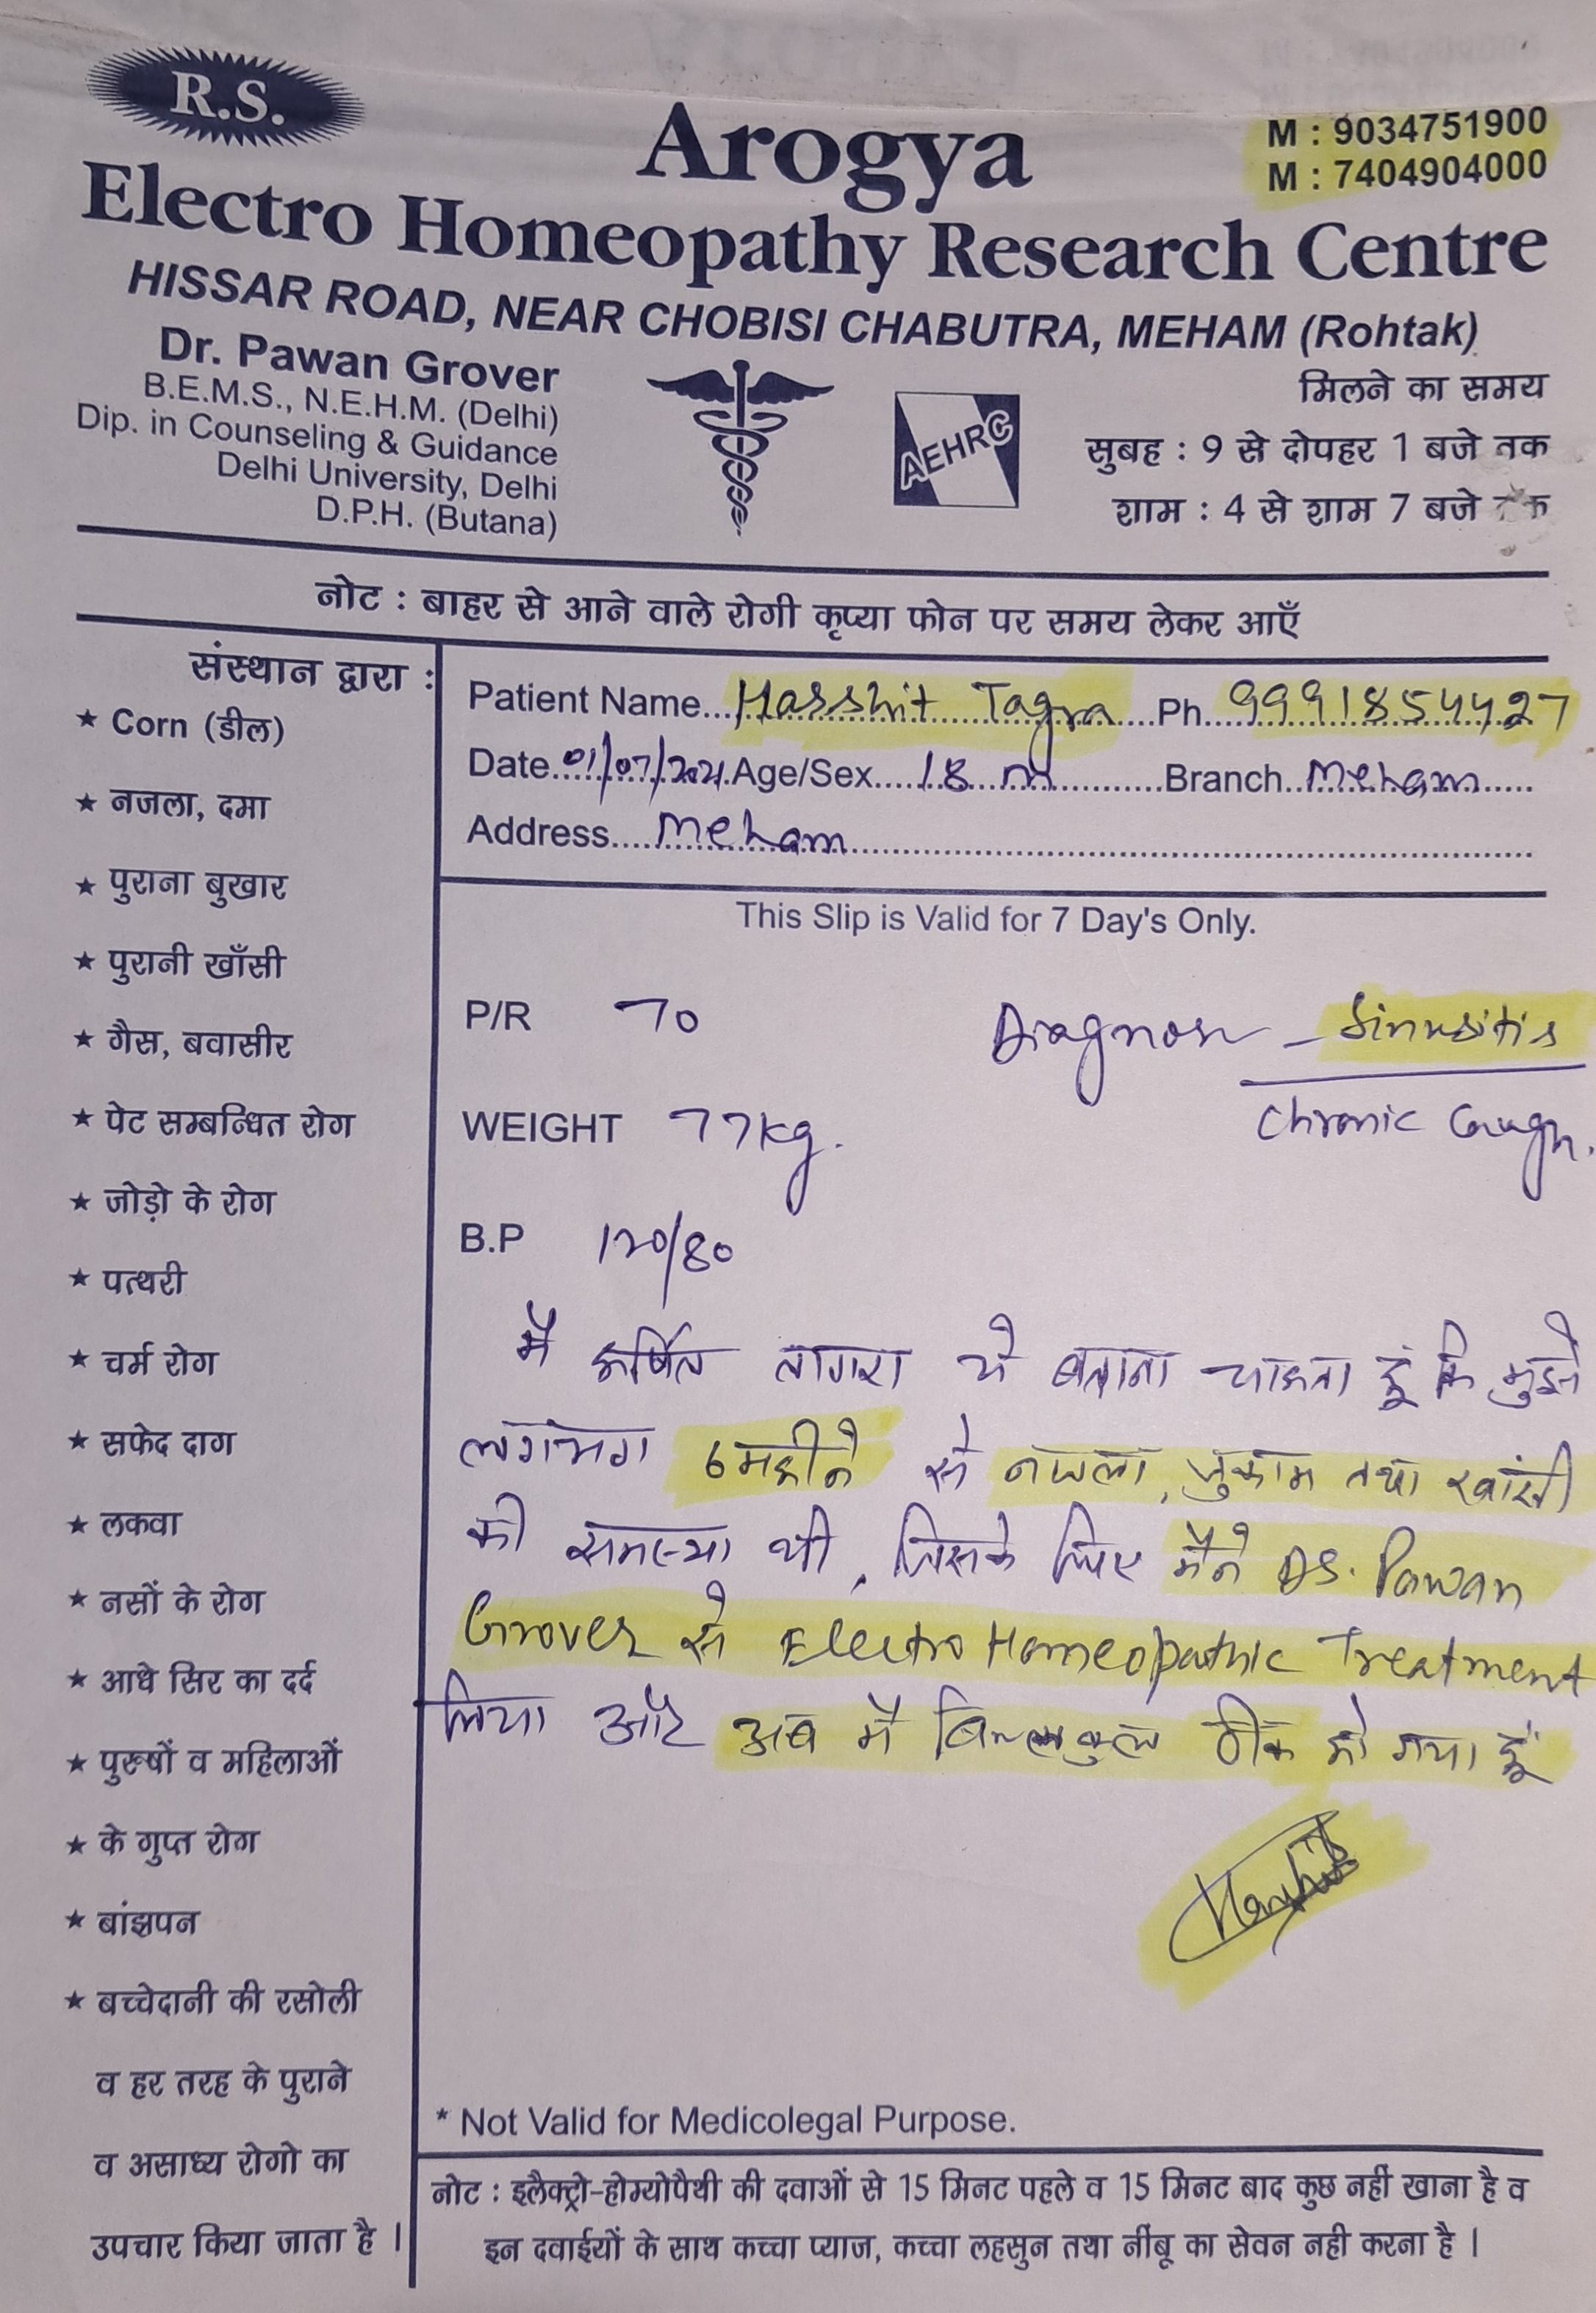 R.S.
Arogya
M : 9034751900
M : 7404904000
Electro Homeopathy Research Centre
HISSAR ROAD, NEAR CHOBISI CHABUTRA, MEHAM (Rohtak)
Dr. Pawan Grover
B.E.M.S., N.E.H.M. (Delhi)
Dip. in Counseling & Guidance
Delhi University, Delhi
D.P.H. (Butana)
AEHRC
मिलने का समय
सुबह : 9 से दोपहर 1 बजे तक
शाम : 4 से शाम 7 बजे तक
नोट : बाहर से आने वाले रोगी कृप्या फोन पर समय लेकर आएँ
संस्थान द्वारा :
★ Corn (डील)
★ नजला, दमा
★ पुराना बुखार
★ पुरानी खाँसी
★ गैस, बवासीर
★ पेट सम्बन्धित रोग
★ जोड़ो के रोग
★ पत्थरी
★ चर्म रोग
★ सफेद दाग
★ लकवा
★ नसों के रोग
★ आधे सिर का दर्द
★ पुरूषों व महिलाओं
★ के गुप्त रोग
★ बांझपन
★ बच्चेदानी की रसोली
व हर तरह के पुराने
व असाध्य रोगो का
उपचार किया जाता है ।
Patient Name Harshit Tagra Ph. 9991854427
Date 01/07/2021 Age/Sex 18 M Branch Meham
Address Meham
This Slip is Valid for 7 Day's Only.
P/R 70
Diagnosis - Sinusitis
Chronic Cough.
WEIGHT 77kg.
B.P 120/80
मै हर्षित तागरा ये बताना चाहता हूं कि मुझे
लगभग 6 महीने से नजला, जुकाम तथा खांसी
की समस्या थी, जिसके लिए मैने Dr. Pawan
Grover से Electro Homeopathic Treatment
लिया और अब मै बिल्कुल ठीक हो गया हूं
Harshit
* Not Valid for Medicolegal Purpose.
नोट : इलैक्ट्रो-होम्योपैथी की दवाओं से 15 मिनट पहले व 15 मिनट बाद कुछ नहीं खाना है व
इन दवाईयों के साथ कच्चा प्याज, कच्चा लहसुन तथा नींबू का सेवन नही करना है ।